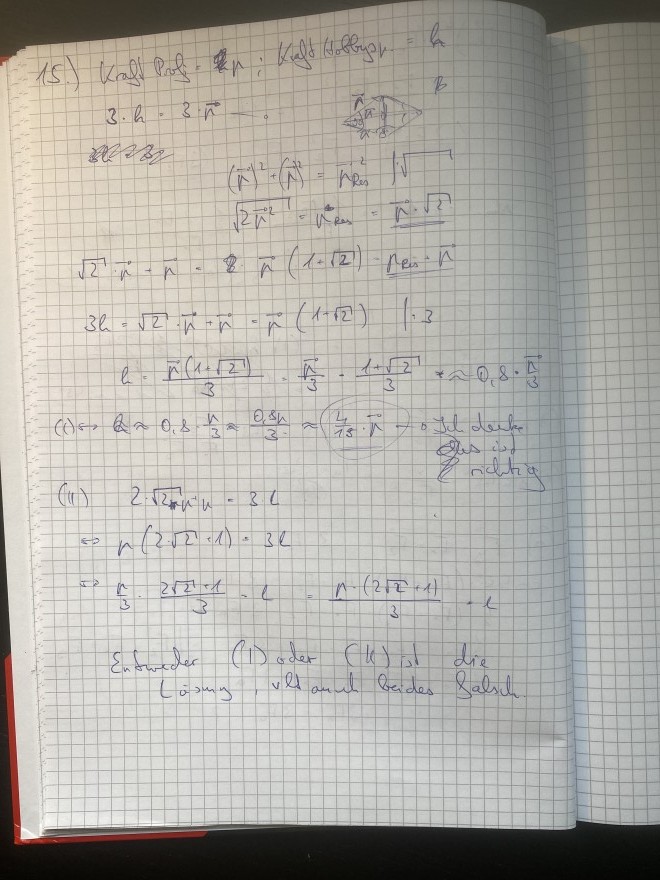 15.) Kraft Prof = p ; Kraft Hobbysp = h
3·h = 3·p⃗ →
B
p⃗
(p⃗)² + (p⃗)² = p⃗Res² | √
√2p⃗² = pRes = p⃗·√2
√2·p⃗ + p⃗ = p⃗ (1+√2) = pRes + p⃗
3h = √2·p⃗ + p⃗ = p⃗ (1+√2) | :3
h = p⃗(1+√2)/3 = p⃗/3 · 1+√2/3 ≈ 0,8·p⃗/3
(I) ⇔ h ≈ 0,8·p/3 ≈ 0,8p/3 ≈ 4/15·p⃗ → Ich denke
das ist
richtig
(II) 2·√2 p + p = 3l
⇔ p(2·√2+1) = 3l
⇔ p/3 · 2√2+1/3 = l = p·(2√2+1)/3 = l
Entweder (I) oder (II) ist die
Lösung, vlt auch beides falsch